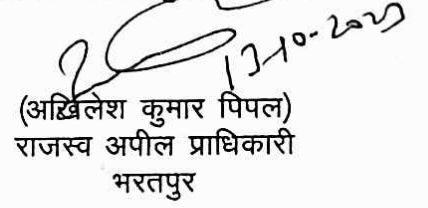 13-10-2023
(अखिलेश कुमार पिपल)
राजस्व अपील प्राधिकारी
भरतपुर